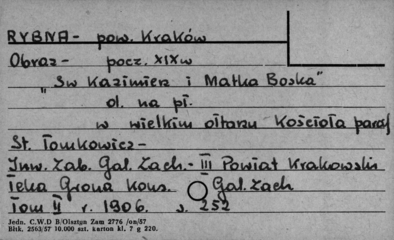 RYBNA - pow. Kraków
Obraz - pocz. XIX w
„Sw Kazimierz i Matka Boska"
ol. na pł.
w wielkim ołtarzu Kościoła paraf
St. Tomkowicz -
Inw. Zab. Gal. Zach. - III Powiat Krakowski
Teka Grona Kons. Gal. Zach
Tom II r. 1906. s. 252
Jedn. C.W.D B/Olsztyn Zam 2776 /on/57
Bltk. 2563/57 10.000 szt. karton kl. 7 g 220.